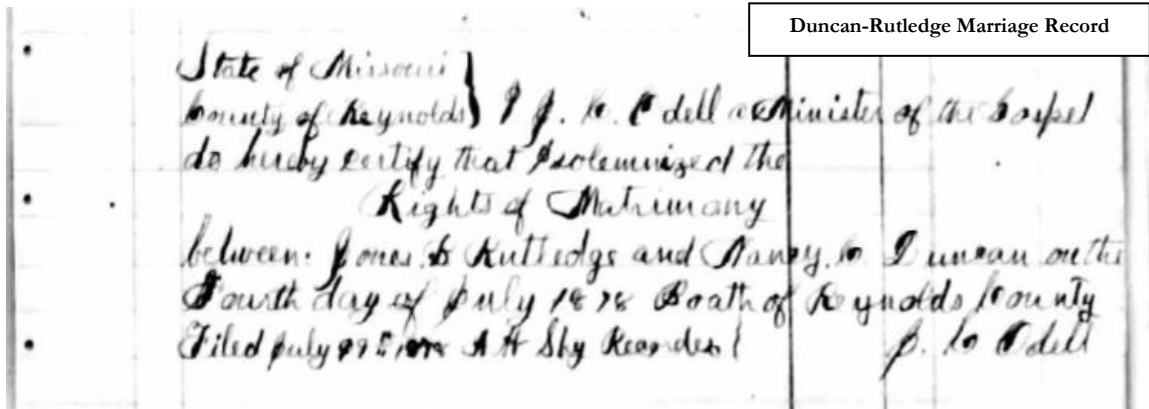 Duncan-Rutledge Marriage Record
State of Missouri }
County of Reynolds } I J. C. Odell a Minister of the Gospel
do hereby certify that I solemnized the
Rights of Matrimony
between Jones Rutledge and Nancy C. Duncan on the
Fourth day of July 1878 Boath of Reynolds County
Filed July 1878 A H Shy Recorder J. C. Odell